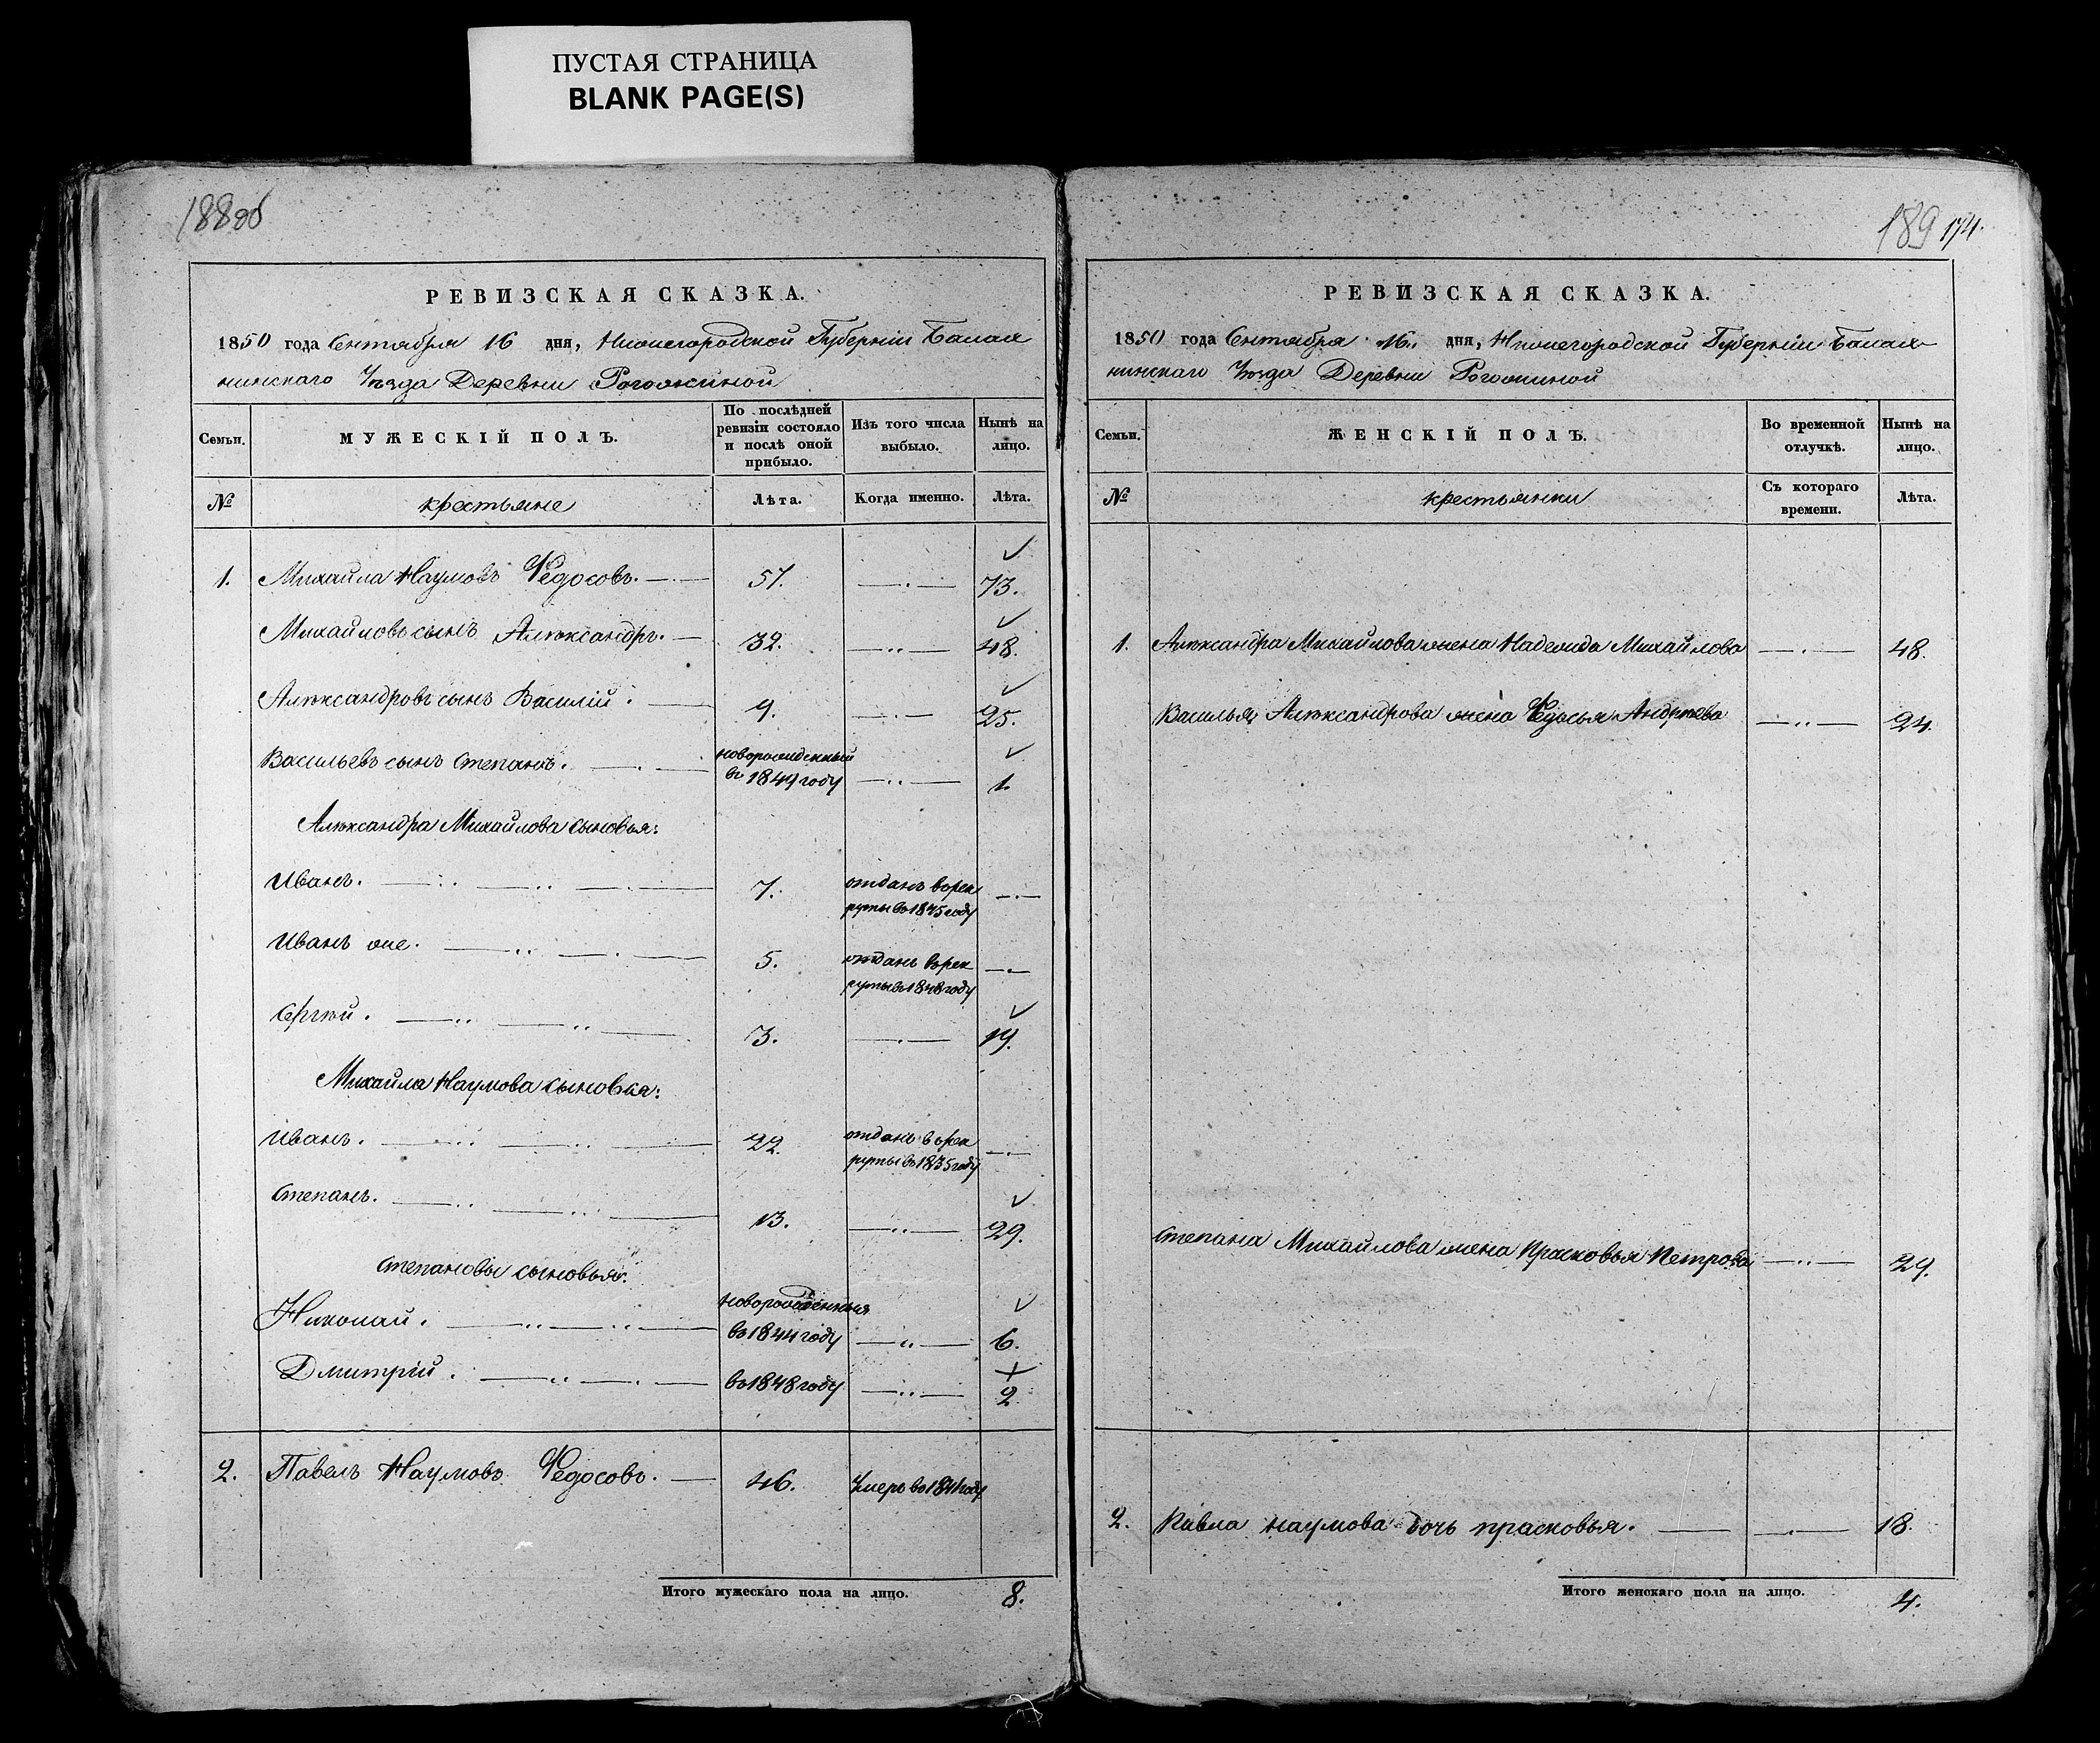 ПУСТАЯ СТРАНИЦА
BLANK PAGE(S)
188об
РЕВИЗСКАЯ СКАЗКА.
1850 года Сентября 16 дня, Нижегородской Губернiи Балах
нинскаго Уѣзда Деревни Рогожиной
Семьи. МУЖЕСКІЙ ПОЛЪ. По послѣдней ревизіи состояло и послѣ оной прибыло. Изъ того числа выбыло. Нынѣ на лицо.
№ крестьяне Лѣта. Когда именно. Лѣта.
1. Михайла Наумовъ Ѳедосовъ. 57. 73.
Михайловъ сынъ Алѣксандръ. 32. 48.
Алѣксандровъ сынъ Василій. 9. 25.
Васильевъ сынъ Степанъ. новорожденный въ 1849 году 1.
Алѣксандра Михайлова сыновья:
Иванъ. 7. отданъ в рек
руты въ 1845 году
Иванъ же. 5. отданъ в рек
руты въ 1848 году
Сергѣй. 3. 19.
Михайла Наумова сыновья:
Иванъ. 22. отданъ в рек
руты въ 1835 году
Степанъ. 13. 29.
Степановы сыновья:
Николай. новорожденныя
въ 1844 году 6.
Дмитрій. въ 1848 году 2
2. Павелъ Наумовъ Ѳедосовъ. 46. Умеръ въ 1841 году
Итого мужескаго пола на лицо. 8.
189 174.
РЕВИЗСКАЯ СКАЗКА.
1850 года Сентября 16. дня, Нижегородской Губерніи Балах
нинскаго Уѣзда Деревни Рогожиной
Семьи. ЖЕНСКІЙ ПОЛЪ. Во временной отлучкѣ. Нынѣ на лицо.
№ крестьянки Съ котораго времени. Лѣта.
1. Алѣксандра Михайлова жена Надежда Михайлова 48.
Василья Алѣксандрова жена Ѳедосья Андрѣева 24.
Степана Михайлова жена Прасковья Петрова 29.
2. Павла Наумова дочь прасковья. 18.
Итого женскаго пола на лицо. 4.